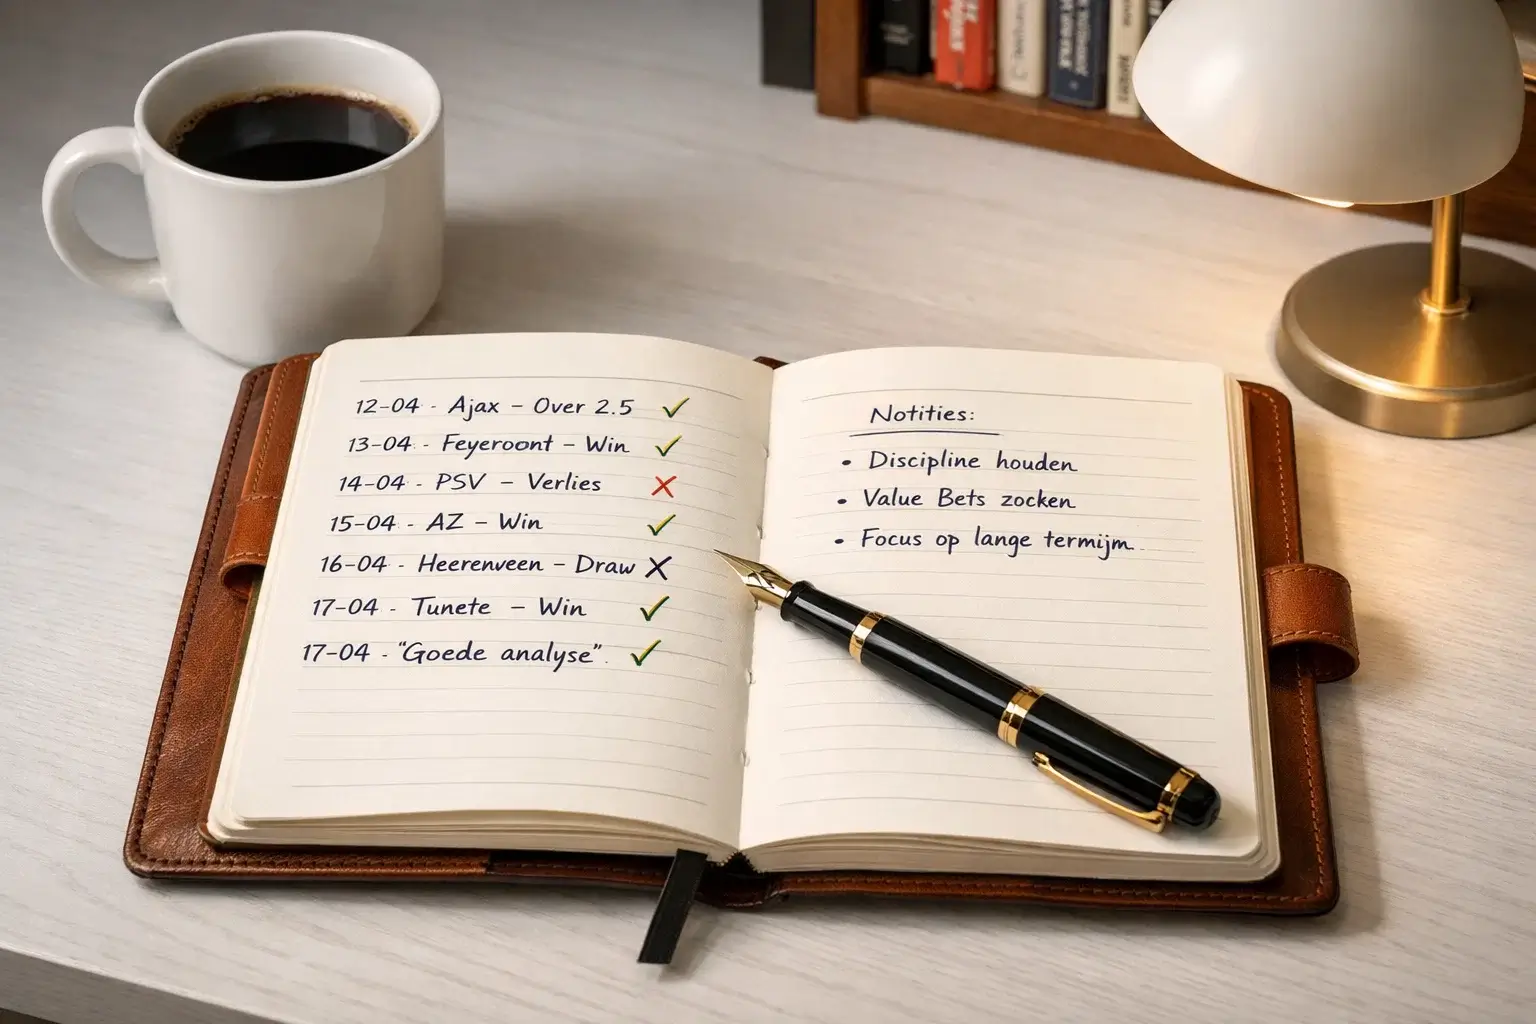 12-04 - Ajax - Over 2.5 ✓
13-04 - Feyeroont - Win ✓
14-04 - PSV - Verlies ✗
15-04 - AZ - Win ✓
16-04 - Heerenveen - Draw ✗
17-04 - Tunete - Win ✓
17-04 - "Goede analyse". ✓
Notities:
• Discipline houden
• Value Bets zocken
• Focus op lange termijm